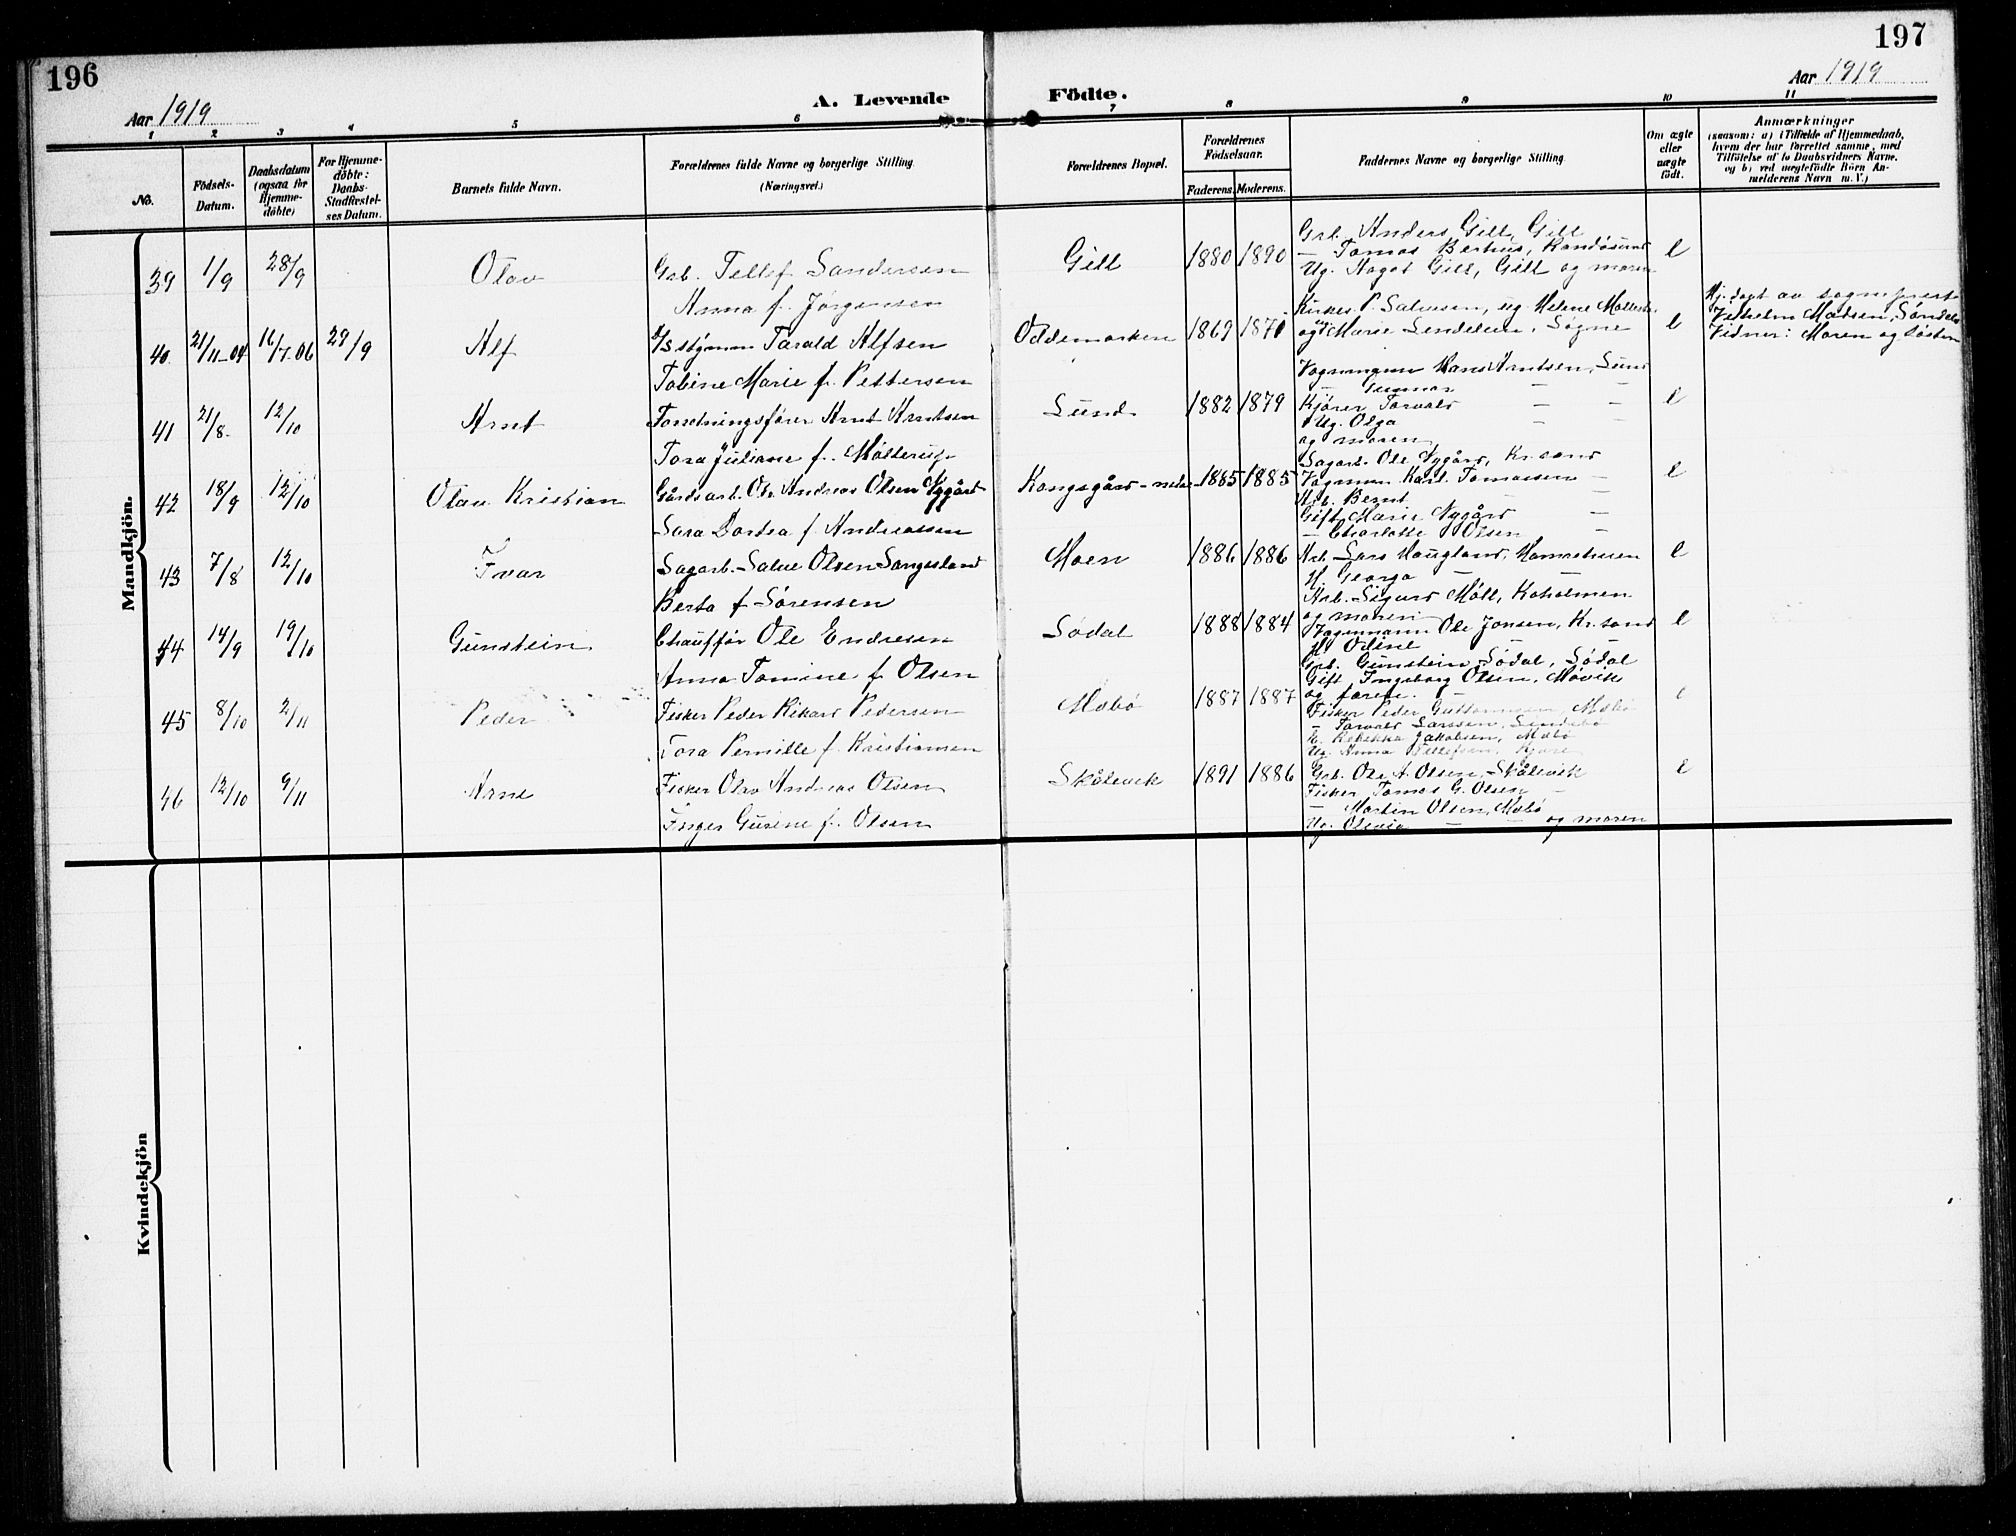 196
197
Aar 1919
A. Levende Födte.
Aar 1919
1 2 3 4 5 6 7 8 9 10 11
No.
Födsels-Datum.
Daabsdatum (ogsaa for Hjemmedöbte)
For Hjemmedöbte: Daabs-Stadfæstelses Datum.
Barnets fulde Navn.
Forældrenes fulde Navne og borgerlige Stilling (Næringsvei.)
Forældrenes Bopæl.
Forældrenes Födselsaar.
Faderens. Moderens.
Faddernes Navne og borgerlige Stilling
Om ægte eller uægte födt.
Anmærkninger
(saasom: a) i Tilfælde af Hjemmedaab,
hvem der har forrettet samme, med
Tilföielse af to Daabsvidners Navne.
og b) ved uægtefödte Börn An-
melderens Navn m. V.)
Mandkjön.
39 1/9 28/9 Olav
Grb. Tellef Sandersen
Anna f. Jørgensen
Gill 1880 1890
Grb. Anders Gill, Gill
— Tomas Berhus, Randøsund
Ug. Aagot Gill, Gill og moren
e
40. 21/11-04 16/7.06 29/9 Alf
Tarald Alfsen
Tobine Marie f. Pettersen
Oddemarken 1869 1870
Kirkes. P. Salvesen, ug Helene
og Marie Lindelien, Sogne
e
Hj.døpt av sogneprest
Vilhelm Madsen, Søndel
Vidner: Moren og søsteren
41 21/8. 12/10 Arnt
Forretningsfører Arnt Arntsen
Tora Juliane f. Mølterup
Lund 1882 1879
Vognmann Hans Arntsen, Lund
— Gunnar — —
Kjører Torvald — —
Ug. Olga — —
og moren
e
42 18/9 12/10 Olav Kristian
Gårdsarb. Ole Andreas Olsen Nygård
Sara Dortea f Andreassen
Kongsgård - nedre 1885 1885
Sagarb. Ole Nygård, Kr.sand
Vognmn Karl Tomassen —
Arb. Bernt —
Gift Marie Nygård —
— Charlotte Olsen —
e
43 7/8 12/10 Ivar
Sagarb. Salve Olsen Songesland
Berta f Sørensen
Moen 1886 1886
Arb. Lars Haugland,
H. Georga —
Arb. Sigurd Møll, Koholmen
og moren
e
44 14/9 19/10 Gunstein
Chauffør Ole Endresen
Anna Tomine f Olsen
Sødal 1888 1884
Vognmann Ole Jonsen, Kr.sand
H. Odine
Grb. Gunstein Sødal, Sødal
Gift Ingeborg Olsen, Møvik
og faren.
e
45 8/10 2/11 Peder
Fisker Peder Rikard Pedersen
Tora Pernille f. Kristiansen
Mæbø 1887 1887
Fisker Peder Guttormsen, Mæbø
— Torvald Larssen,
H. Rebekka Jakobsen, Mæbø
Ug. Anna Tellefsen,
e
46 12/10 9/11 Arne
Fisker Olav Andreas Olsen
Inger Gurine f. Olsen
Skålevik 1891 1886
Grb. Ole A. Olsen, Skålevik
Fisker Tomas G. Olsen —
— Martin Olsen, Mæbø
Ug. Olevia — — og moren
e
Kvindekjön